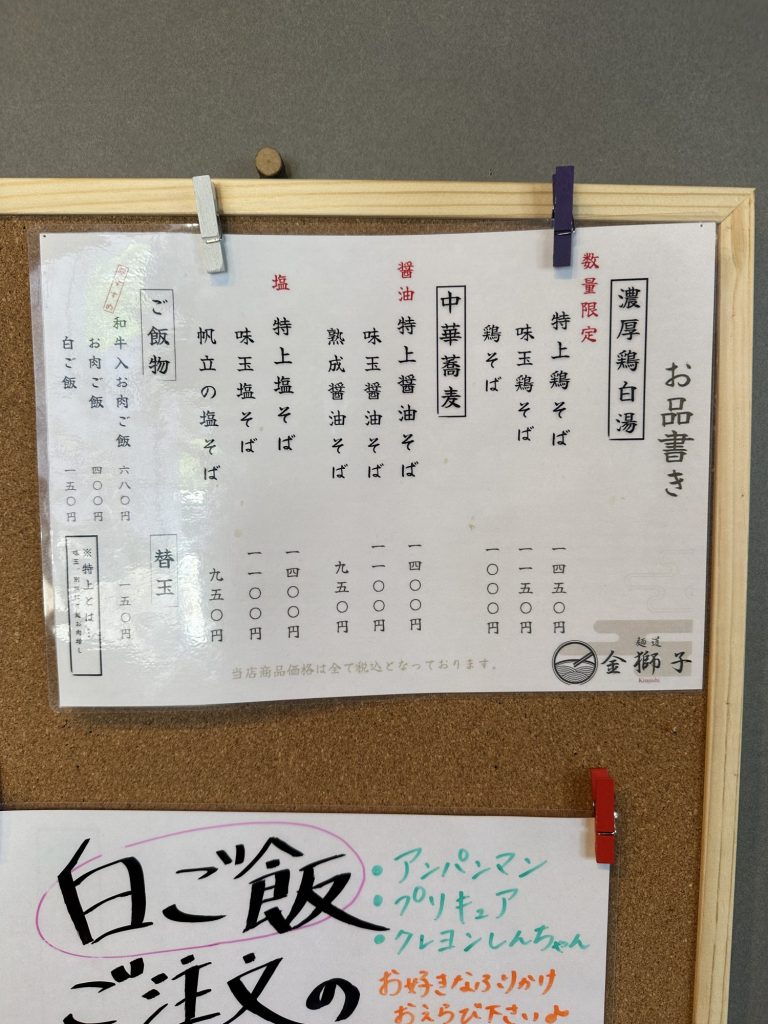 お品書き
濃厚鶏白湯
数量限定
特上鶏そば 一四五〇円
味玉鶏そば 一一五〇円
鶏そば 一〇〇〇円
中華蕎麦
醤油
特上醤油そば 一四〇〇円
味玉醤油そば 一一〇〇円
熟成醤油そば 九五〇円
塩
特上塩そば 一四〇〇円
味玉塩そば 一一〇〇円
帆立の塩そば 九五〇円
ご飯物
和牛入お肉ご飯 六八〇円
お肉ご飯 四〇〇円
白ご飯 一五〇円
替玉
一五〇円
※特上とは…
当店商品価格は全て税込となっております。
麺道
金獅子
Kinjishi
白ご飯
ご注文の
・アンパンマン
・プリキュア
・クレヨンしんちゃん
お好きなふりかけ
おえらび下さいよ